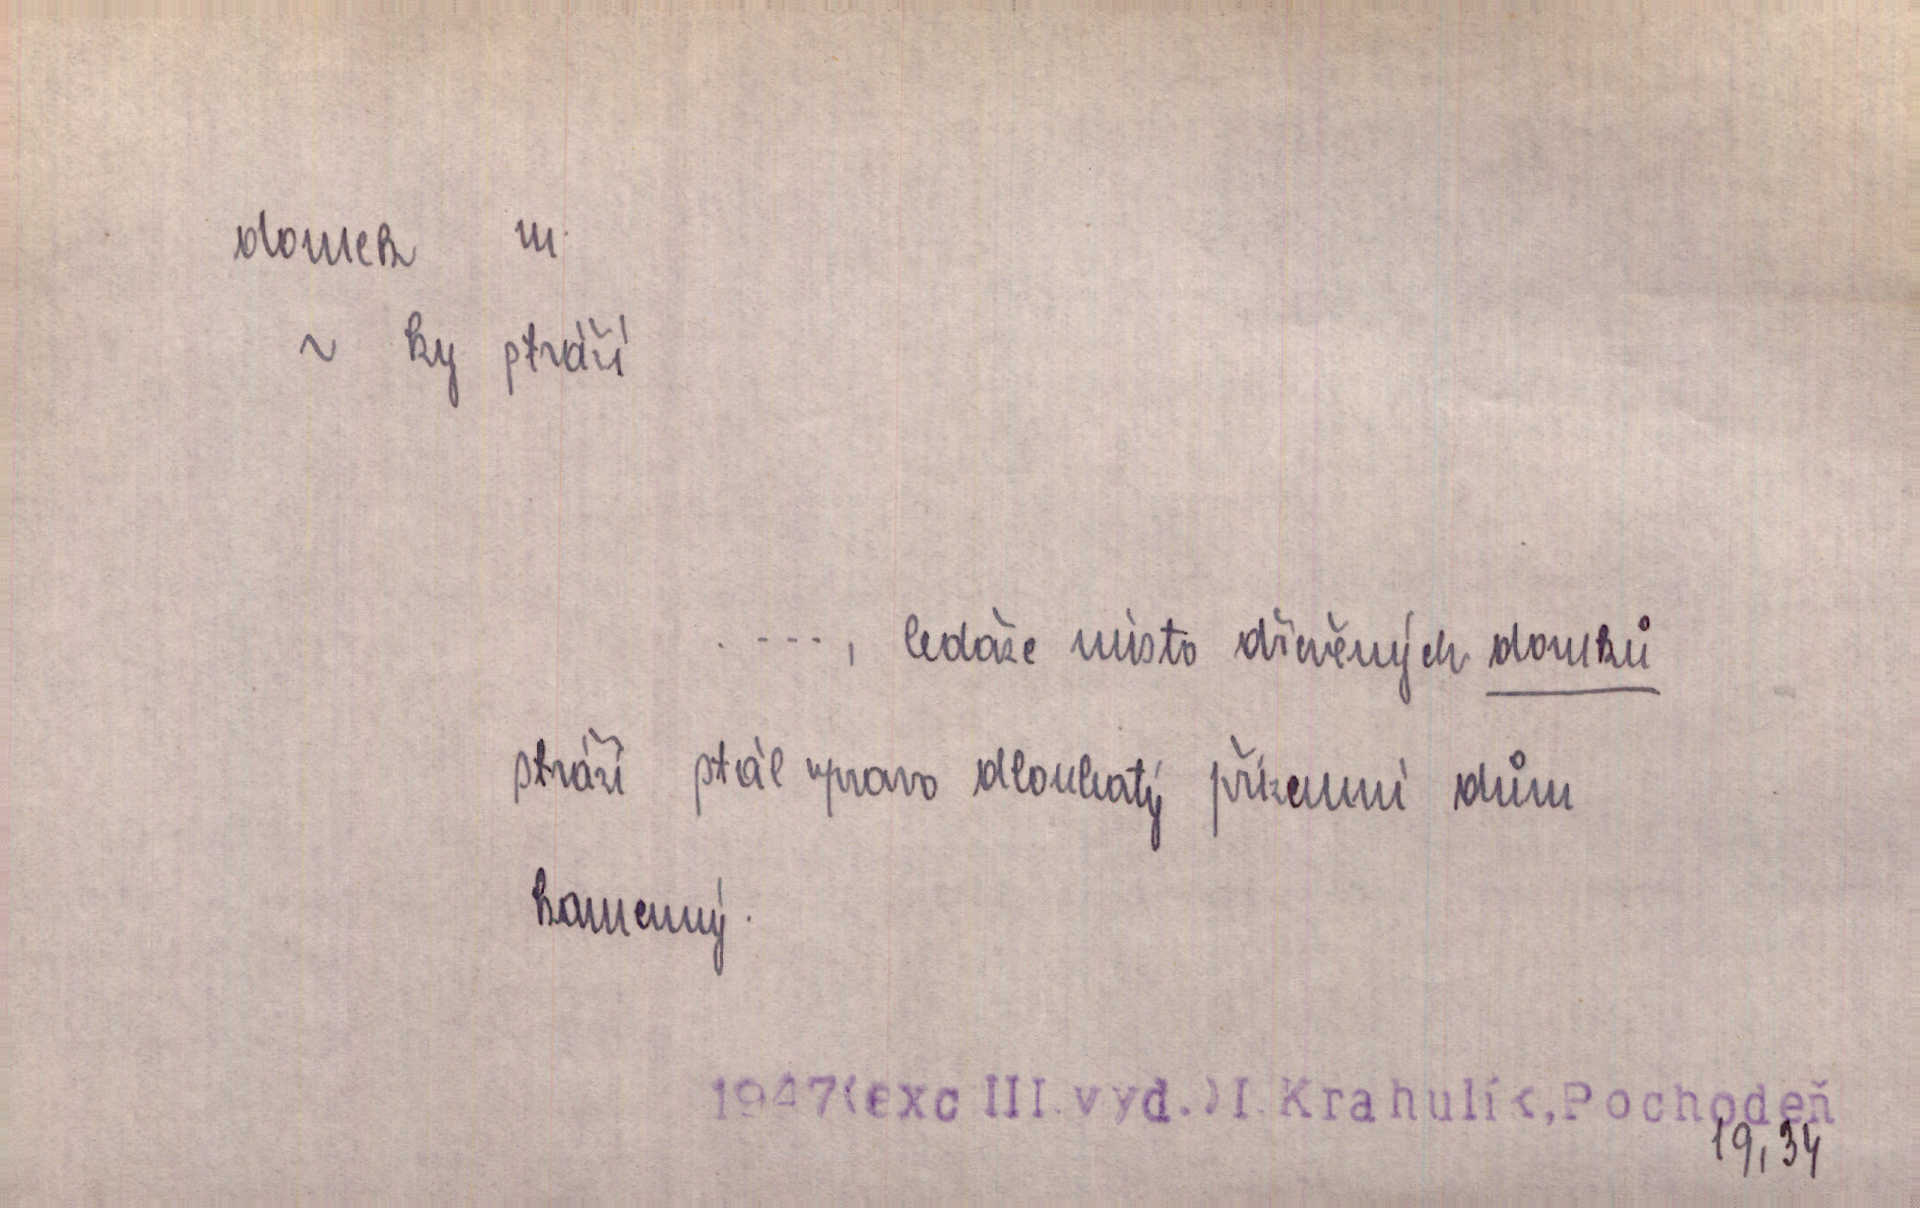 domek m.
~ ky stráží
. - - - , ledaže místo dřevěných domků
stráží stál vpravo dlouhatý přízemní dům
kamenný.
1947(exc III.vyd.)I.Krahulík,Pochodeň
19,34